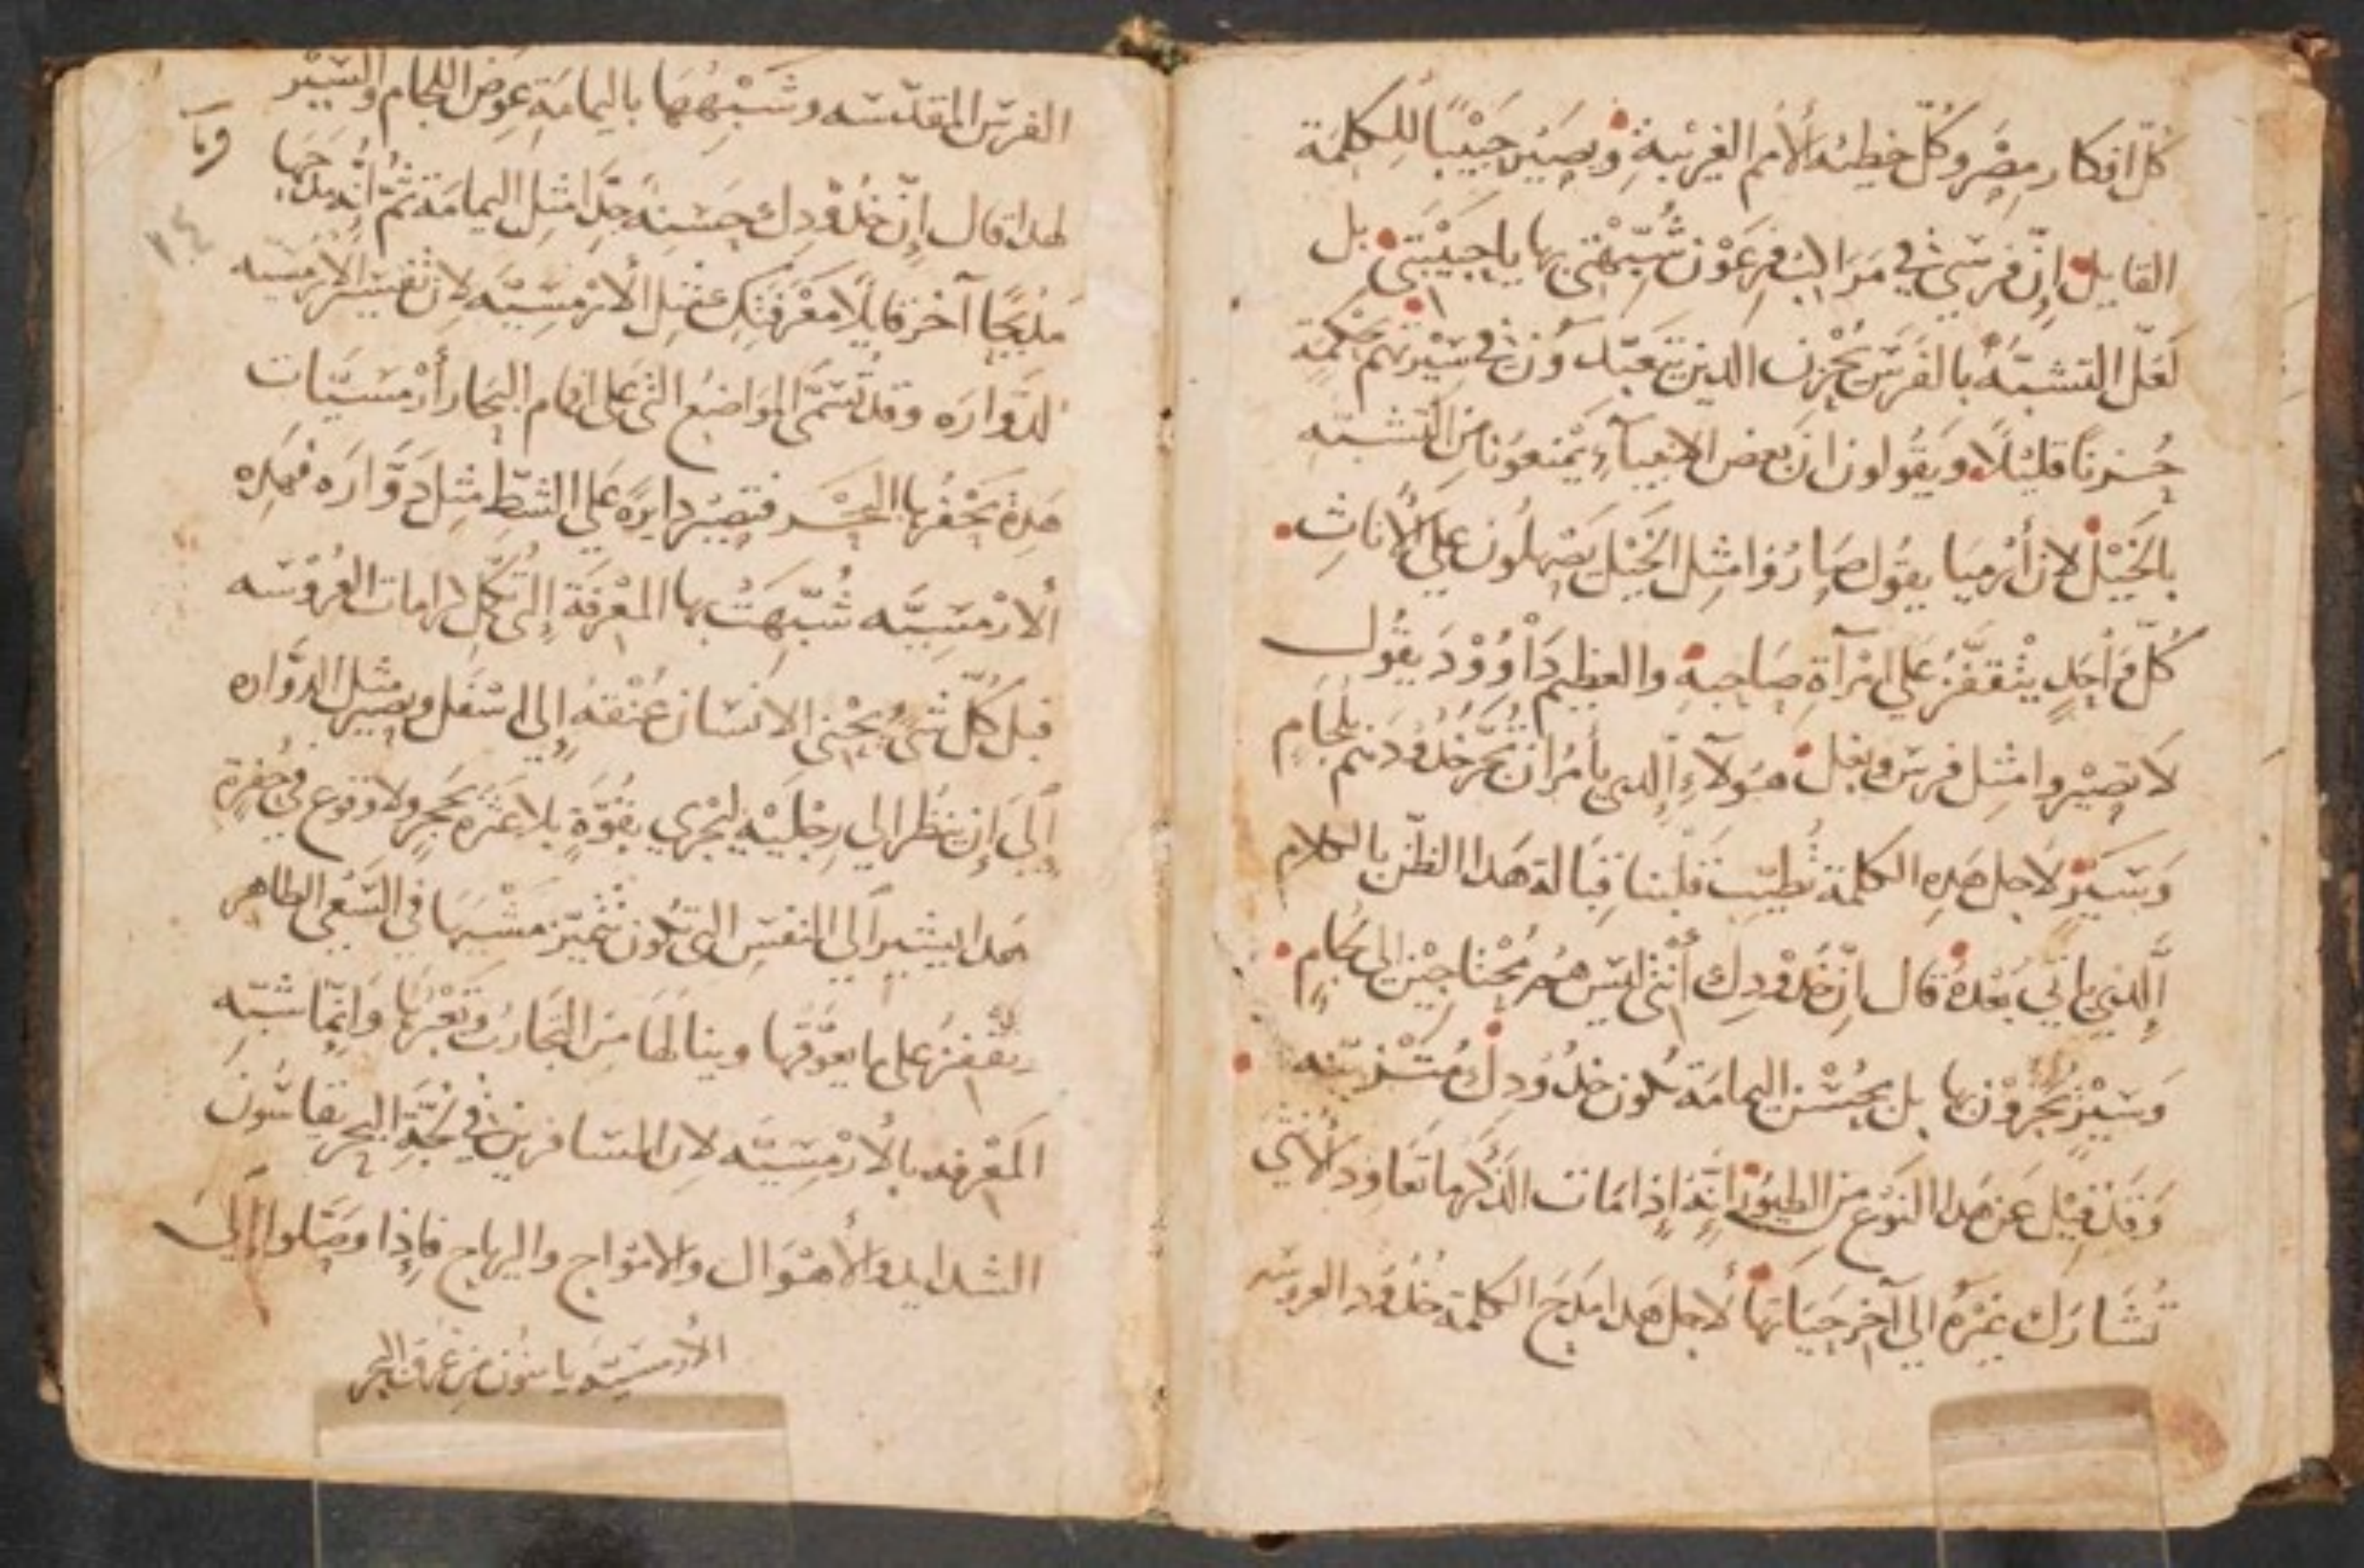 كُلّ افكار مِصْر وكُلّ خطيئة الأمم الغريبةِ ويصير حَبيْبًا للكلمة
القايل إنّ فرسي في مَراكب فِرعَوْن شُبّهْتي بها يا حبيْبتي بل
لَعَلّ التشبّه بالفَرَس يُحْزن الدين يتعبّدوُن في سيْرتهم بحكمة
حُزنًا قليْلًا ويَقُولون ان بَعض الانبيآءِ يمْنعونا من التشبّه
بالخَيْل لان أرْميَا يقول صَارُوْا مثِل الخَيْل يَصْهلُون علي الأناثِ
كُلّ وَاحدٍ يتْقفّز علي امْرآةِ صَاحبهِ والعظيم دَاوُوْدَ يقُول
لَا تصِيْروا مثِل فرس وبغل هوَلآءِ الّدي يأمُر ان تُحزّ خدُوْدهم بلجَامٍ
وَسَيْرٍ لاجل هَدِه الكلمة نُطيّب قلْبنا قِبَالة هَدا الظنّ بالكلام
الّدي ياتي بَعْدهُ قال إنّ خدُوْدكِ أنْتي ليس هُم مُحتاجيْن الي لجَامٍ
وَسَيْرٍ يُحَزّوْن بها بل بحُسْن اليمامَة تكون خدُوْدكِ مُتَزيّنه
وَقدْ قيْل عَن هَدا النَوْع من الطيُوْر انّهُ إذا مَات الدَكر ما تعَاود الأُنْثي
تُشَارك غيْرهُ إلي آخر حيَاتها لاجل هَدا مَدَحَ الكلمة خدُوْد العروسه
الفرس المقدّسَه وشَبْههَا باليمامَةِ عِوَض اللجام والسَيْر
وبا
لهدا قال إنّ خدُوْدكِ حسَنهٌ جدًا مثِل اليمامَة ثُمّ أنّه مدَحَها
مدِيْحًا آخرَ قايلًا مَعْرفَتكِ مثِل الأرْمسيّه لان تفسير الارمسيه
الدوّارَه وقد تُسَمَّي المَوَاضِعُ التي علي افمام البحَار أرْمسيّات
هَدِهِ يَحْفُرها البحْر فتصِيْر دايرةً عَلي الشطّ مثِل دَوّارَه فهَدِه
الأرْمسيّه شُبّهَتْ بها المَعْرفَة إلي تُكلّ كرامات العرُوْسَه
قبل كُلّ شيْ يُحْني الانسَان عنْقهُ إلي اسْفل ويصِير مثل الدوّاره
إلَي إن ينظُر إلي رجْلَيْه ليَجْري بقُوّةٍ بلا عثرة بحَجرٍ ولا وقوع في حُفرة
هَدا يشير إلي النفسِ التي تكُون تتْميّز مَشْيهَا في السَعي الطاهر
يقْفز علي ما يعوّقها وينالهَا من التجَارُب وتَعْبُرها وَانمّا شبّه
المَعْرفه بالأرْمسيّه لان المسَافرين في لُجّةِ البحر يقاسُون
الشدايد والأهْوَال والامْواج والرياح فإذا وصَلوا إلي
الأرمسيّه يامنون من غرق البحر